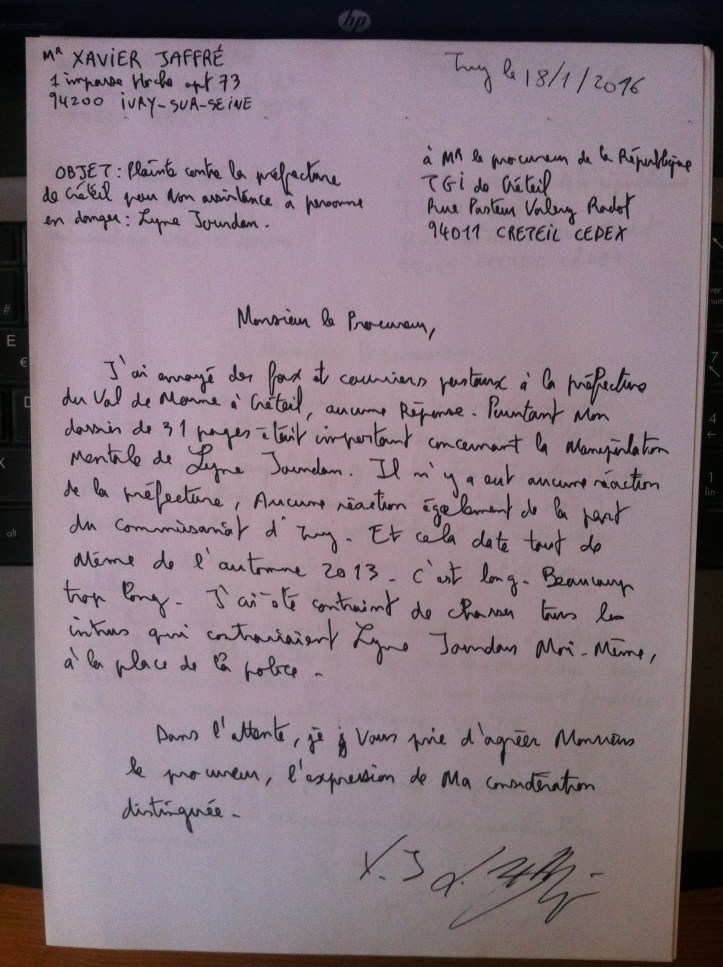 hp
Mr XAVIER JAFFRÉ
1 impasse Hoche apt 73
94200 IVRY-SUR-SEINE
Ivry le 18/1/2016
OBJET: Plainte contre la préfecture
de Créteil pour Non assistance à personne
en danger: Lyne Jourdan.
à Mr le procureur de la République
TGI de Créteil
Rue Pasteur Valery Radot
94011 CRETEIL CEDEX
Monsieur le Procureur,
J'ai envoyé des fax et courriers postaux à la préfecture
du Val de Marne à Créteil, aucune Réponse. Pourtant Mon
dossier de 31 pages était important concernant la Manipulation
Mentale de Lyne Jourdan. Il n'y a eut aucune réaction
de la préfecture, Aucune réaction également de la part
du commissariat d'Ivry. Et cela date tout de
Même de l'automne 2013. C'est long. Beaucoup
trop long. J'ai été contraint de chasser tous les
intrus qui contrariaient Lyne Jourdan Moi-Même,
à la place de la police.
Dans l'attente, je Vous prie d'agréer Monsieur
le procureur, l'expression de Ma considération
distinguée.
X. J